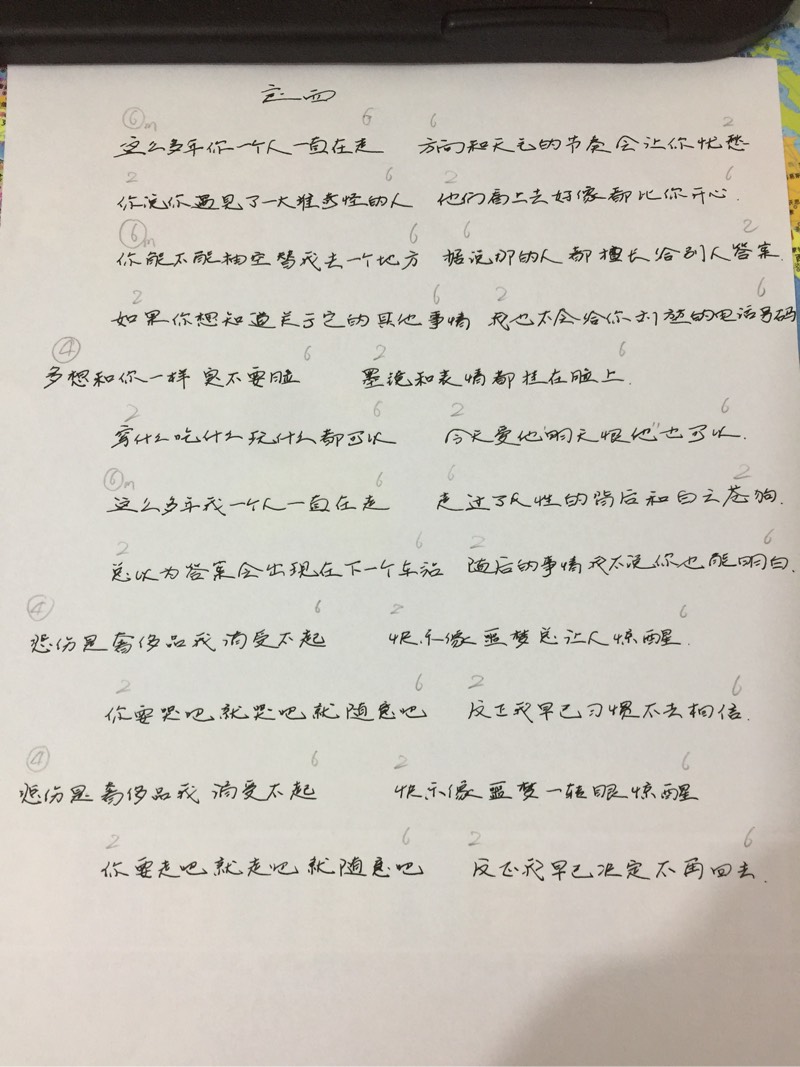 定西
⑥m 6 6 2
这么多年你一个人一直在走 方向和天气的节奏会让你忧愁
2 6 2 6
你说你遇见了一大堆奇怪的人 他们看上去好像都比你开心.
⑥m 6 6 2
你能不能抽空替我去一个地方 据说那的人都擅长给别人答案.
2 6 2 6
如果你想知道关于它的其他事情 我也不会给你刘旋的电话号码
④ 6 2 6
多想和你一样臭不要脸 墨镜和表情都挂在脸上.
2 6 2 6
穿什么吃什么玩什么都可以 今天爱他"明天恨他"也可以.
⑥m 6 6 2
这么多年我一个人一直在走 走过了人性的背后和白云苍狗.
2 6 2 6
总以为答案会出现在下一个车站 随后的事情我不说你也能明白.
④ 6 2 6
悲伤是奢侈品我消受不起 快乐像噩梦总让人惊醒.
2 6 2 6
你要哭吧就哭吧就随意吧 反正我早已习惯不去相信.
④ 6 2 6
悲伤是奢侈品我消受不起 快乐像噩梦一转眼惊醒
2 6 2 6
你要走吧就走吧就随意吧 反正我早已决定不再回去.